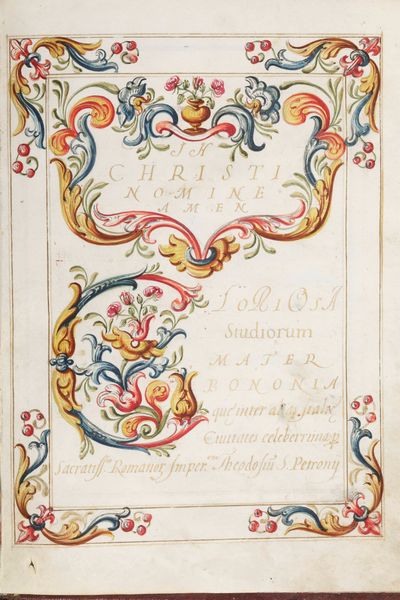 IN
CHRISTI
NOMINE
AMEN
GLORIOSA
Studiorum
MATER
BONONIA
que inter
Civitates celeberrima
Sacratiss. Romanor. Imper. Theodosiu S. Petronij